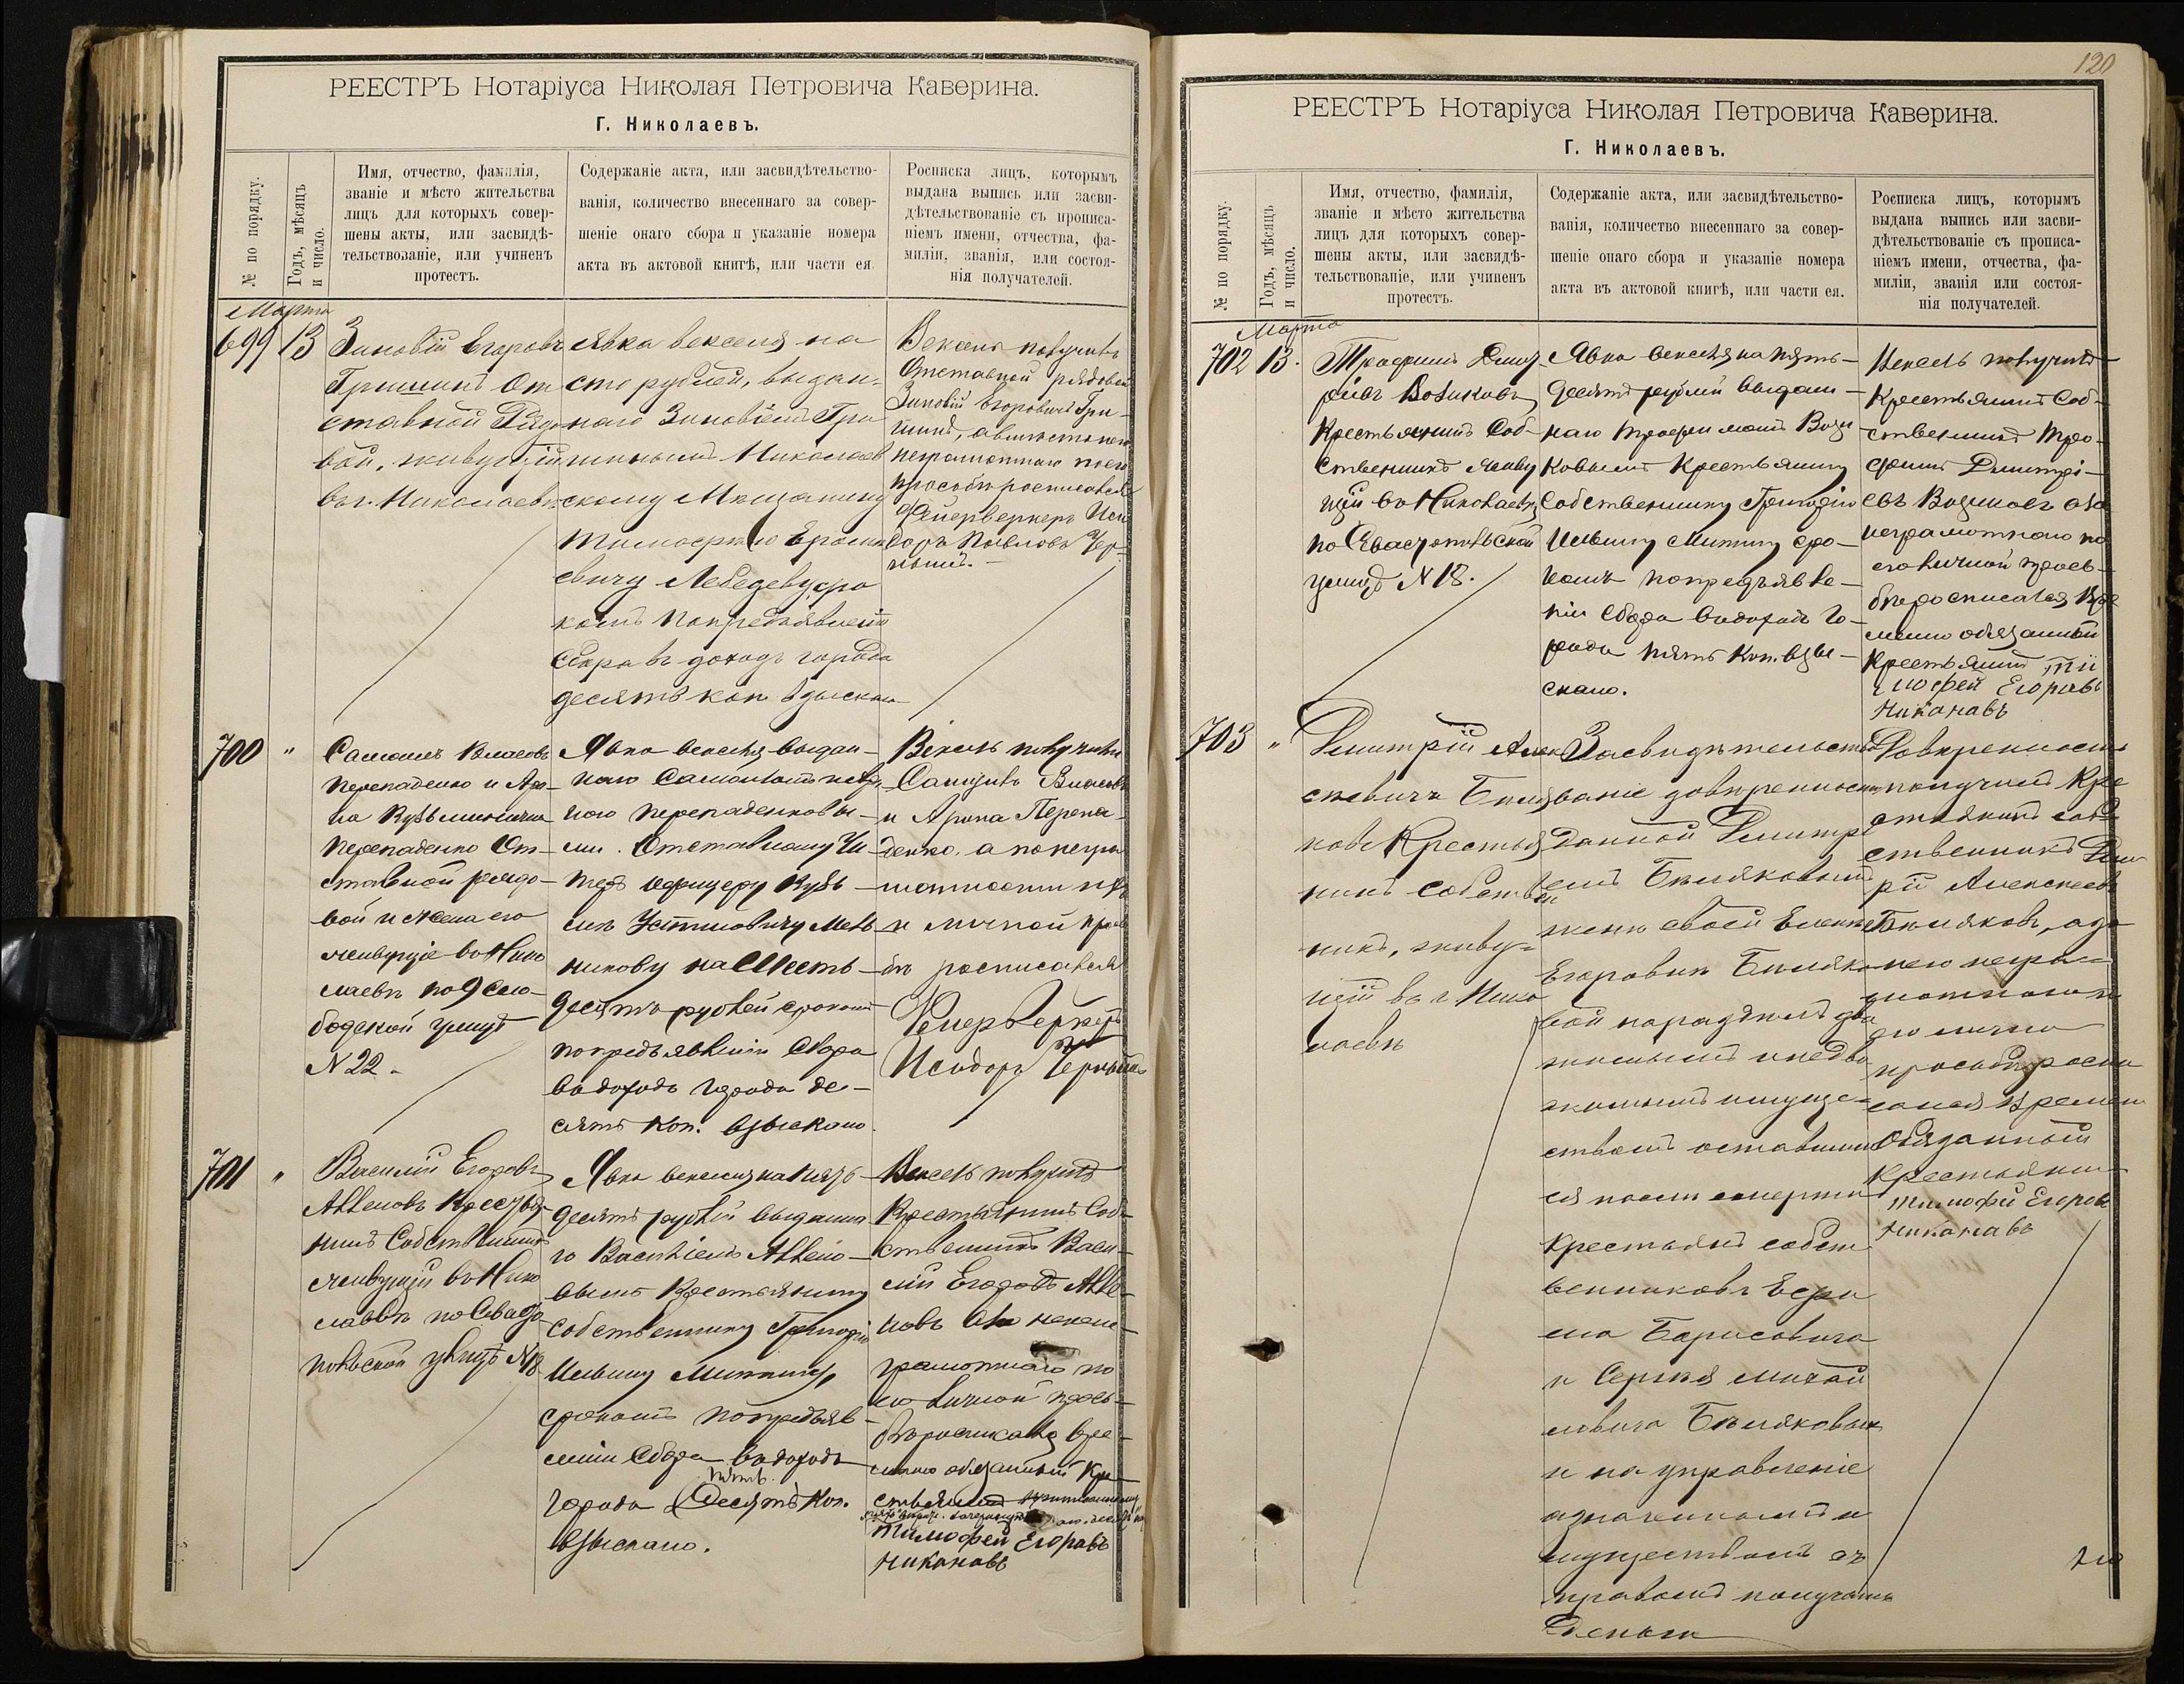 РЕЕСТРЪ Нотаріуса Николая Петровича Каверина.
Г. Николаевъ.
№ по порядку.
Годъ, мѣсяцъ и число.
Имя, отчество, фамилія,
званіе и мѣсто жительства
лицъ для которыхъ совер-
шены акты, или засвидѣ-
тельствованіе, или учиненъ
протестъ.
Содержаніе акта, или засвидѣтельство-
ванія, количество внесеннаго за совер-
шеніе онаго сбора и указаніе номера
акта въ актовой книгѣ, или части ея.
Росписка лицъ, которымъ
выдана выпись или засви-
дѣтельствованіе съ прописа-
ніемъ имени, отчества, фа-
миліи, званія, или состоя-
нія получателей.
Марта
699 13
Зиновій Егоровъ
Гришинъ От
ставной Рядо
вой, живущій
въ г. Николаевѣ
явка векселя на
сто рублей, выдан=
наго Зиновіемъ Гри
шинымъ Николаев
скому Мѣщанину
Тимоѳею
Лебедеву, сро
комъ по предъявленіи
Сбора въ доходъ города
десять коп взыскано
Вексель получилъ
Отставной рядовой
Зиновій Егоровичъ Гри-
шинъ, а вмѣсто него
неграмотнаго по его
просьбѣ росписался
Фейерверкеръ Иси
доръ Павловъ Чер-
ный.
700 "
Самоилъ Власовъ
Перепаденко и Ари-
на Кузьминична
Перепаденко От-
ставной рядо-
вой и жена его
живущіе въ Нико
лаевѣ по 9 Сло-
бодской улицѣ
N 22.
Явка векселя выдан-
наго Самоиломъ и Ари
ною Перепаденковы-
ми. Отставному Ун-
теръ офицеру Кузь-
мѣ Устиновичу Мель
никову на Шесть-
десятъ рублей срокомъ
по предъявленіи Сбора
въ доходъ города де-
сять коп. взыскано.
Вексель получили
Самуилъ Власовъ
и Арина Перепа-
денко, а по негра
мотности ихъ
и личной прось
бѣ росписался
Фейерверкеръ
Исидоръ Черный
701 "
Василій Егоровъ
Крестья
нинъ Собственникъ
живущій въ Нико
лаевѣ по Севасто
польской улицѣ N 18
Явка векселя на пять-
десятъ рублей выданна
го Василіемъ
вымъ Крестьянину
собственнику Григорію
Ильину Митину
срокомъ по предъяв-
леніи Сбора въ доходъ
пять.
города Десять коп.
взыскано.
Вексель получилъ
Крестьянинъ Соб-
ственникъ Васи-
лій Егоровъ
новъ а за него не
грамотнаго по
его личной прось-
бѣ росписался вре-
менно обязанный Кре
стьянинъ
Тимофей Егоравъ
Никанавъ
120
РЕЕСТРЪ Нотаріуса Николая Петровича Каверина.
Г. Николаевъ.
№ по порядку.
Годъ, мѣсяцъ и число.
Имя, отчество, фамилія,
званіе и мѣсто жительства
лицъ для которыхъ совер-
шены акты, или засвидѣ-
тельствованіе, или учиненъ
протестъ.
Содержаніе акта, или засвидѣтельство-
ванія, количество внесеннаго за совер-
шеніе онаго сбора и указаніе номера
акта въ актовой книгѣ, или части ея.
Росписка лицъ, которымъ
выдана выпись или засви-
дѣтельствованіе съ прописа-
ніемъ имени, отчества, фа-
миліи, званія или состоя-
нія получателей.
Марта
702 13.
Трофимъ Дмит-
ріевъ Возиковъ
Крестьянинъ Соб-
ственникъ живу
щій въ Николаевѣ
по Севастопольской
улицѣ N 18.
Явка векселя на пять-
десятъ рублей выдан-
наго Трофимомъ Вози
ковымъ Крестьянину
Собственнику Григорію
Ильину Митину сро-
комъ по предъявле-
ніи Сбора въ доходъ го-
рода пять коп. взы-
скано.
Вексель получилъ
Крестьянинъ Соб-
ственникъ Тро-
фимъ Дмитрі-
евъ Возиковъ а за
неграмотнаго по
его личной прось-
бѣ росписался Вре
менно обязанный
Крестьянинъ Ти
мофей Егоравъ
Никанавъ
703 "
Дмитрій Алек
сѣевичъ Бѣля
ковъ Крестья
нинъ собствен
никъ, живу=
щій въ г Нико
лаевѣ
Засвидѣтельство
ваніе довѣренности
данной Дмитрі
емъ Бѣляковымъ
женѣ своей Еленѣ
Егоровнѣ Бѣляко
вой на раздѣлъ дви
жимымъ и недви
жимымъ имуще=
ствомъ оставшим
ся послѣ смерти
Крестьянъ собст
венниковъ Ефи
ма Борисовича
и Сергѣя Михай
ловича Бѣляковыхъ
и на управленіе
означеннымъ и
муществомъ съ
правомъ получать
деньги
Довѣренность
получилъ Кре
стьянинъ соб
ственникъ Дмит
рій Алексѣевъ
Бѣляковъ, а за
него негра=
мотнаго по
его личной
просьбѣ роспи
сался Времен
Обязанный
Крестьянин
Тимофей Егоровъ
Никанавъ